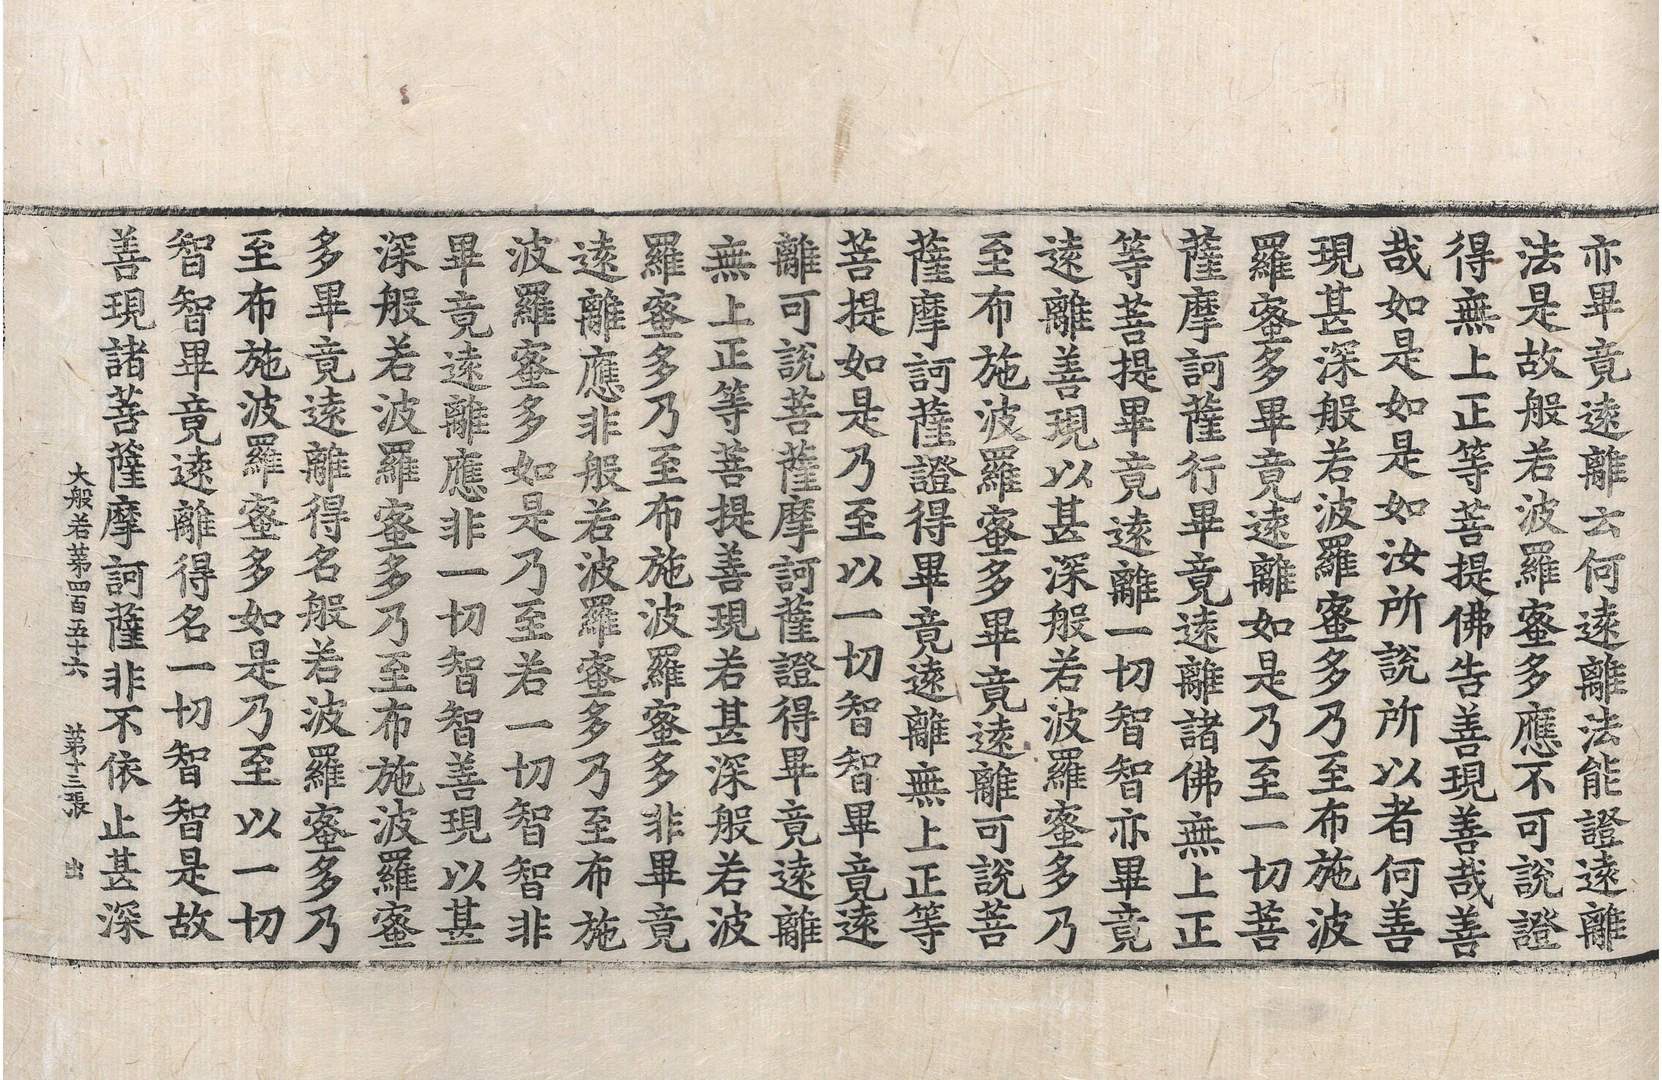 亦畢竟遠離云何遠離法能證遠離
法是故般若波羅蜜多應不可說證
得無上正等菩提佛告善現善哉善
哉如是如是如汝所說所以者何善
現甚深般若波羅蜜多乃至布施波
羅蜜多畢竟遠離如是乃至一切菩
薩摩訶薩行畢竟遠離諸佛無上正
等菩提畢竟遠離一切智智亦畢竟
遠離善現以甚深般若波羅蜜多乃
至布施波羅蜜多畢竟遠離可說菩
薩摩訶薩證得畢竟遠離無上正等
菩提如是乃至以一切智智畢竟遠
離可說菩薩摩訶薩證得畢竟遠離
無上正等菩提善現若甚深般若波
羅蜜多乃至布施波羅蜜多非畢竟
遠離應非般若波羅蜜多乃至布施
波羅蜜多如是乃至若一切智智非
畢竟遠離應非一切智智善現以甚
深般若波羅蜜多乃至布施波羅蜜
多畢竟遠離得名般若波羅蜜多乃
至布施波羅蜜多如是乃至以一切
智智畢竟遠離得名一切智智是故
善現諸菩薩摩訶薩非不依止甚深
大般若第四百五十六 第十三張 出